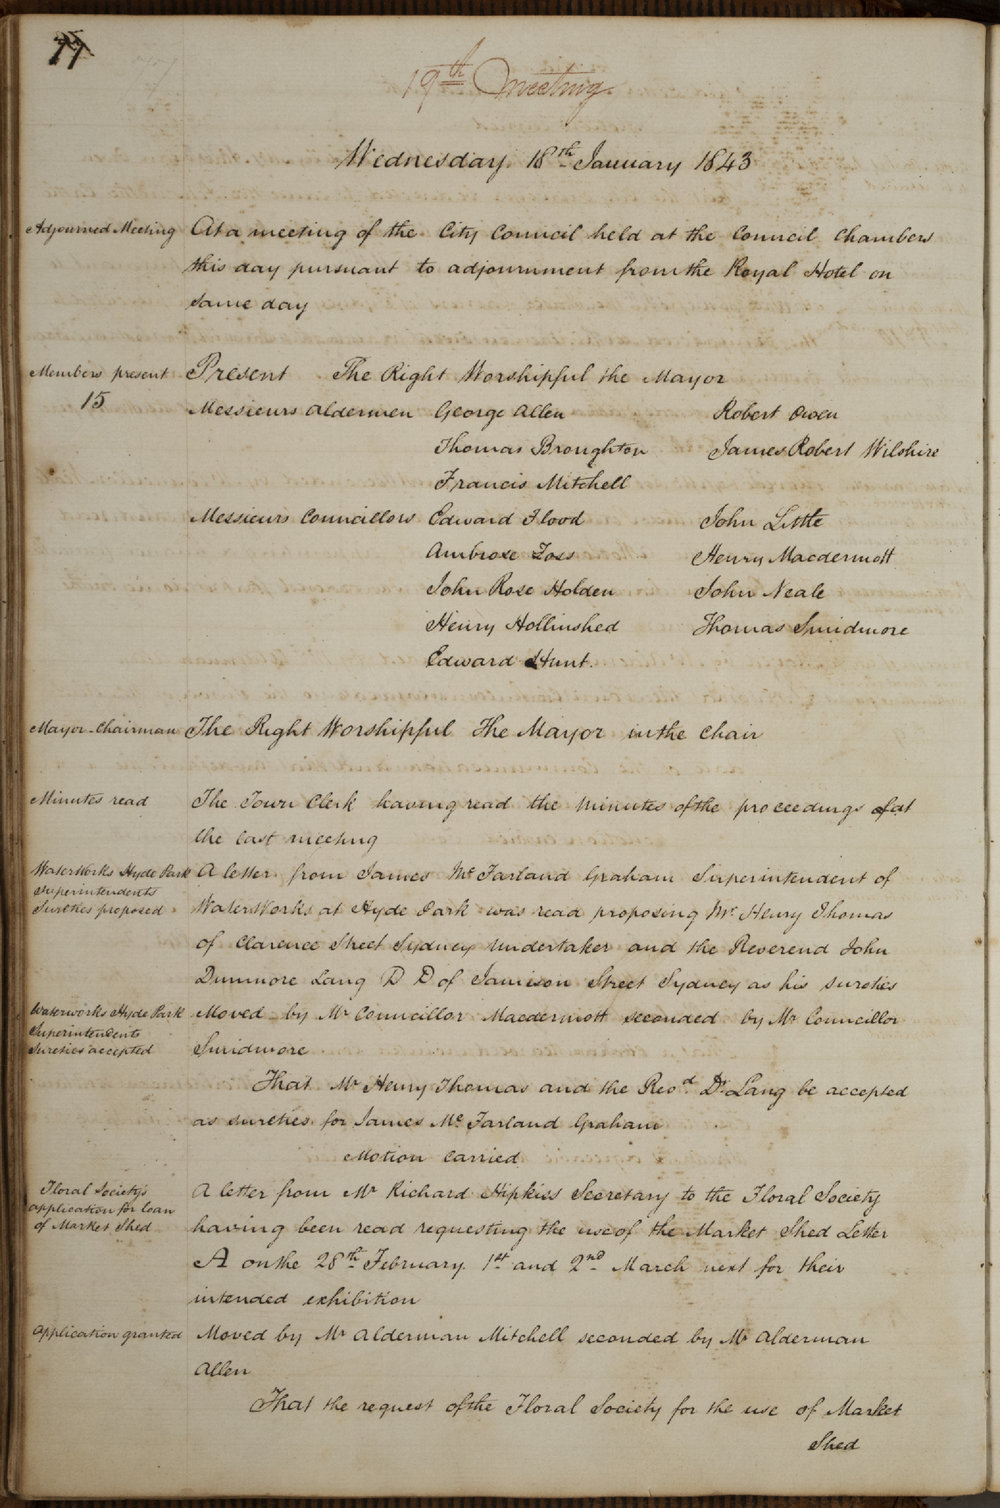 77
19th Meeting
Wednesday 18th January 1843
Adjourned Meeting At a meeting of the City Council held at the Council Chambers
this day pursuant to adjournment from the Royal Hotel on
same day
Members present Present The Right Worshipful the Mayor
15 Messieurs Aldermen George Allen Robert Owen
Thomas Broughton James Robert Wilshire
Francis Mitchell
Messieurs Councillors Edward Flood John Little
Ambrose Foss Henry Macdermott
John Rose Holden John Neale
Henry Hollinshed Thomas Smidmore
Edward Hunt.
Mayor Chairman The Right Worshipful The Mayor in the Chair
Minutes read The Town Clerk having read the minutes of the proceedings of at
the last meeting
WaterWorks Hyde Park A letter from James Mc Farland Graham Superintendent of
Superintendents
Sureties proposed WaterWorks at Hyde Park was read proposing Mr Henry Thomas
of Clarence Street Sydney Undertaker and the Reverend John
Dunmore Lang D D of Jamison Street Sydney as his sureties
Waterworks Hyde Park Moved by Mr Councillor Macdermott seconded by Mr Councillor
Superintendents
Sureties accepted Smidmore
That Mr Henry Thomas and the Revd Dr Lang be accepted
as sureties for James Mc Farland Graham
Motion carried
Floral Society's A letter from Mr Richard Hipkiss Secretary to the Floral Society
application for loan
of Market Shed having been read requesting the use of the Market Shed Letter
A on the 28th February 1st and 2nd March next for their
intended exhibition
Application granted Moved by Mr Alderman Mitchell seconded by Mr Alderman
Allen
That the request of the Floral Society for the use of Market
Shed